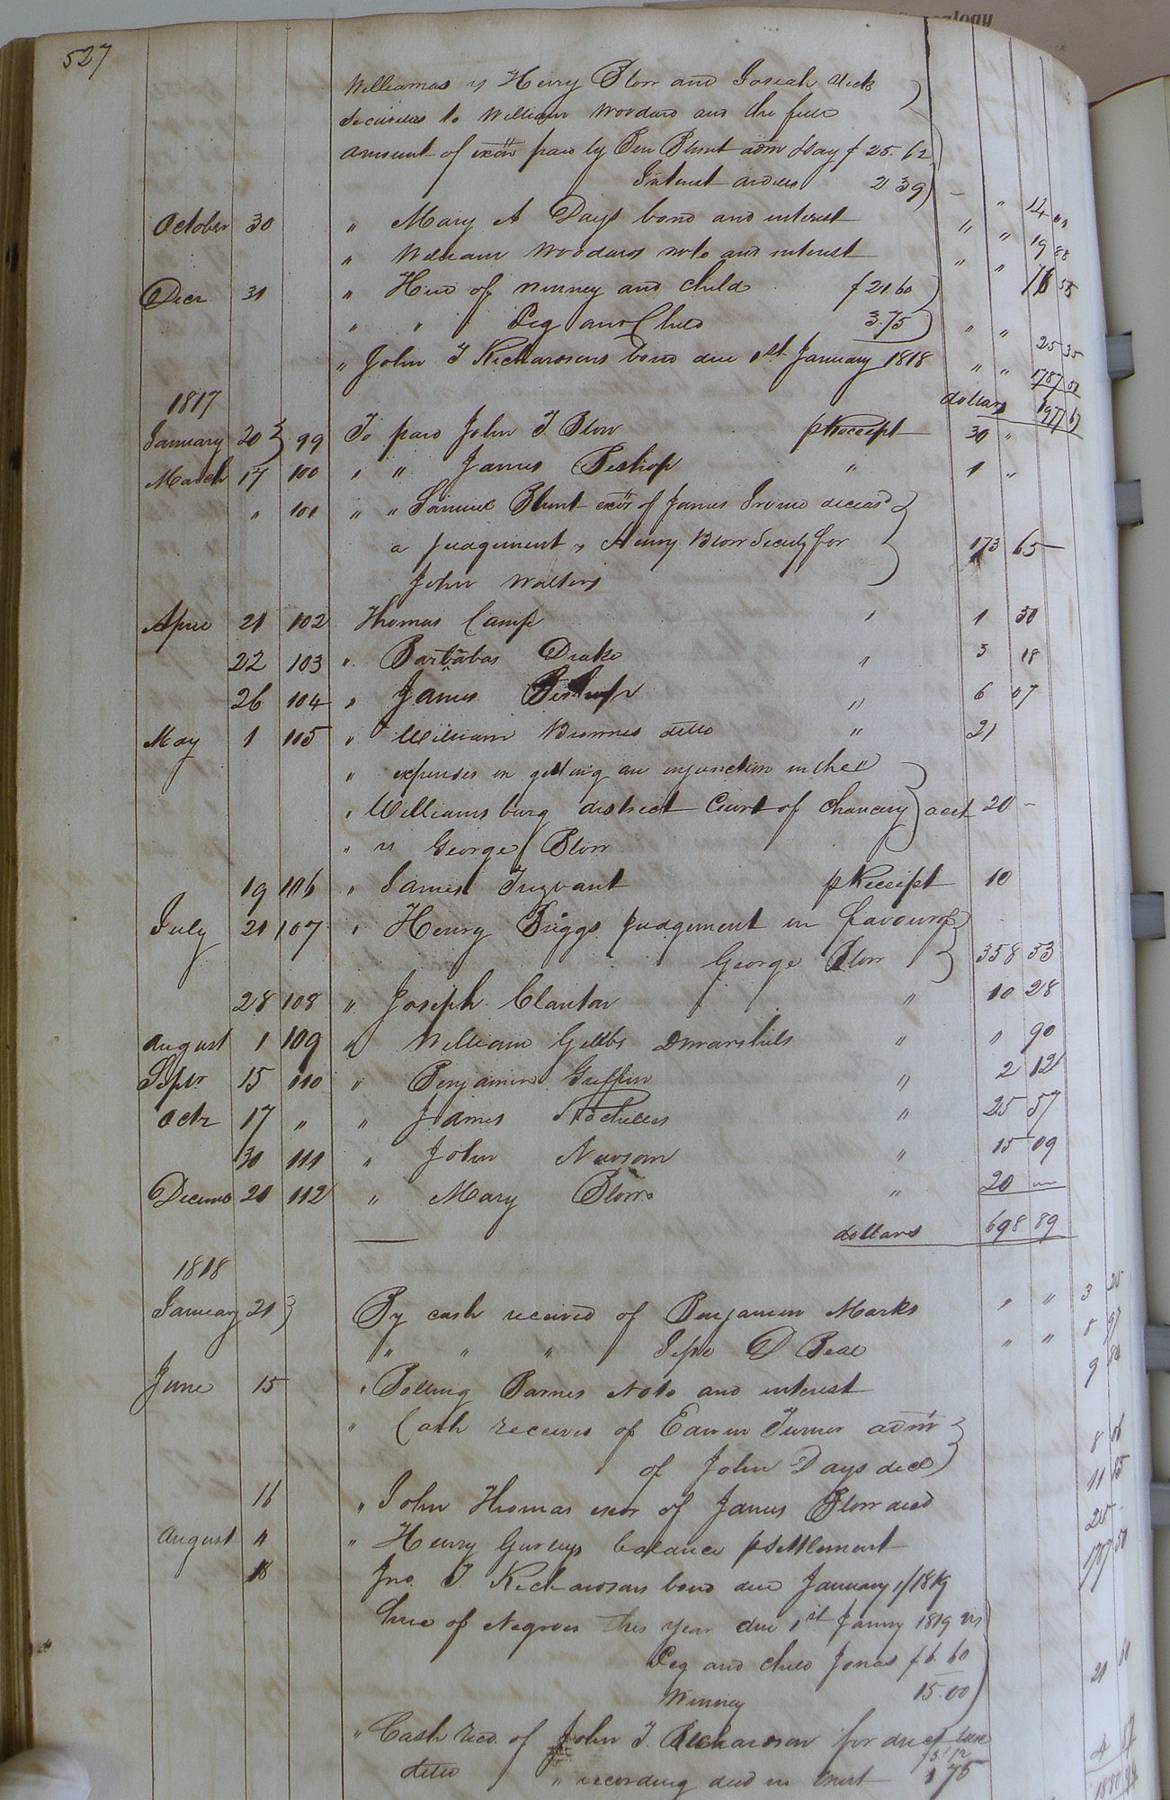 527
Williamas vs Henry Blow and Josiah
Securities to William Woodard and the full
amount of exon paid by Ben Blunt admr Day $ 25. 62
Interest 2 39
October 30 " Mary A Days bond and interest " " 14
" William Woodards note and interest " " 19 88
Decr 31 " Hire of Winney and child $21.60
" " Peg and Child 3.75 " " 25 35
" John T Richardsons bond due 1st January 1818 " " 1787 52
dollars 1977 67
1817
January 20 99 To paid John T Blow p Receipt 30 "
March 17 100 " " James Bishop " 1 "
" 101 " " Samuel Blunt exor of James decead
a judgement vs Henry Blow Security for 173 65
John Walters
April 21 102 Thomas Camp " 1 50
22 103 " Barbabas Drake " 3 18
26 104 " James Bishop " 6 07
May 1 105 " William Brownes ditto " 21
" expenses in getting an injunction in the
" Williamsburg district Court of Chancery acct 20 -
" vs George Blow
19 106 " James Trezvant p Receipt 10
July 21 107 " Henry Briggs judgement in favour of
George Blow 358 53
28 108 " Joseph Clanton " 10 28
August 1 109 " William Gibbs " " 90
Septr 15 110 " Benjamin Griffin " 2 12
Octr 17 " " James " 25 57
30 111 " John Newsom " 15 09
Decemr 21 112 " Mary Blow " 20
dollars 698 89
1818
January 21 By cash received of Benjamin Marks " " 3 25
" " " D Beal " " 8
June 15 " Bolling Barnes Note and interest 9
" Cash received of Edwin Turner admr
of John Days decd 8
16 " John Thomas exor of James Blow decd 11 65
August " " Henry Gurleys balance p settlement 20
18 Jno T Richardsons bond due January 1/1819 1787 50
hire of Negroes this year due 1st Janry 1819 vis
Peg and child Jonas $6.60
Winney 15.00 21 60
" Cash recd. of John T. Richardson for
ditto " recording deed in trust 1 75